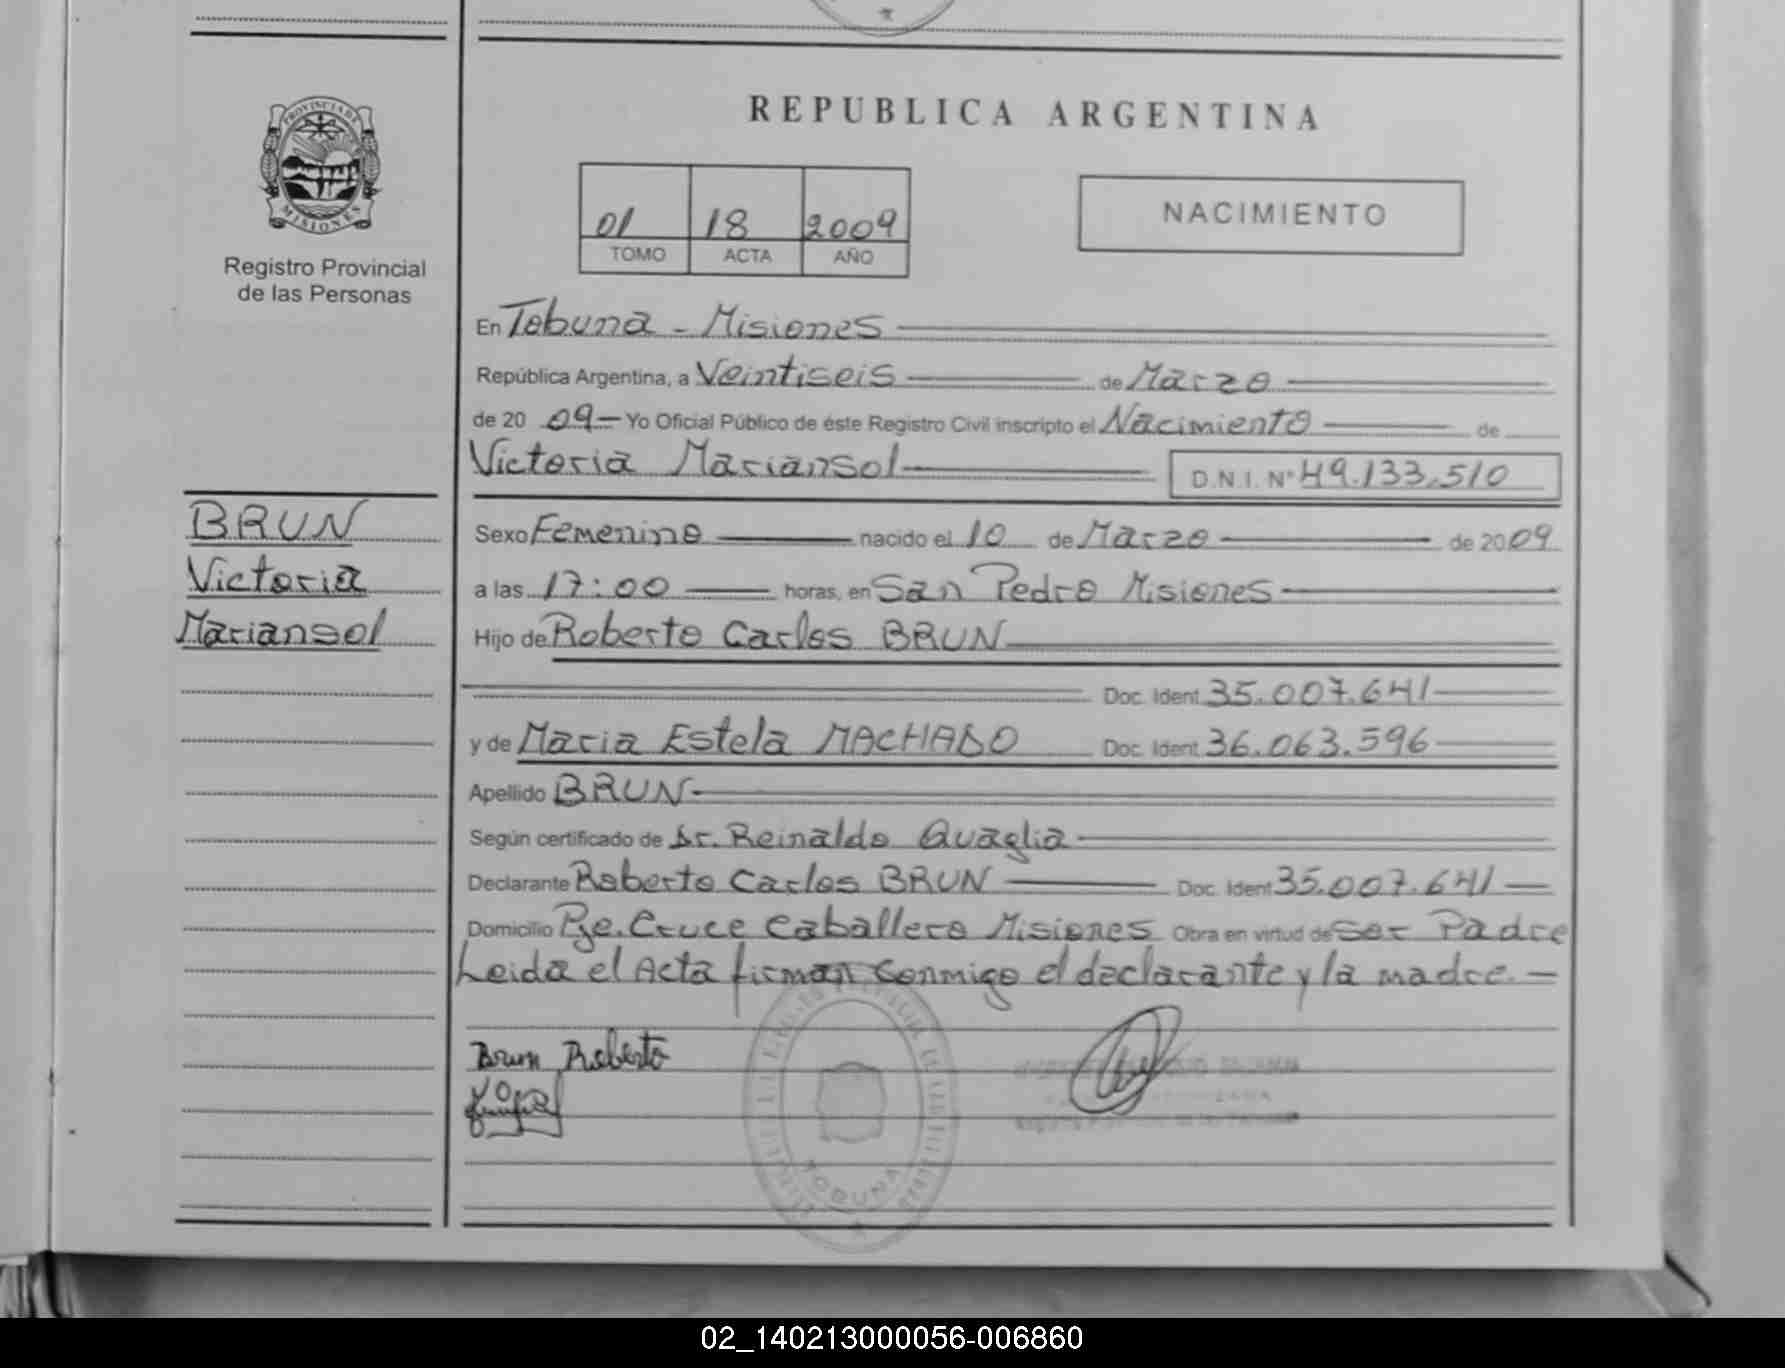 REPUBLICA ARGENTINA
PROVINCIA DE
MISIONES
Registro Provincial
de las Personas
01 18 2009
TOMO ACTA AÑO
NACIMIENTO
En Tobuna - Misiones
República Argentina, a Veintiseis de Marzo
de 20 09 Yo Oficial Público de éste Registro Civil inscripto el Nacimiento de
Victoria Mariansol D.N.I. N° 49.133.510
BRUN
Victoria
Mariansol
Sexo Femenino nacido el 10 de Marzo de 2009
a las 17:00 horas, en San Pedro Misiones
Hijo de Roberto Carlos BRUN
Doc. Ident. 35.007.641
y de Maria Estela MACHADO Doc. Ident. 36.063.596
Apellido BRUN
Según certificado de Dr. Reinaldo Quaglia
Declarante Roberto Carlos BRUN Doc. Ident. 35.007.641
Domicilio Pje. Cruce Caballero Misiones Obra en virtud de Ser Padre
Leida el Acta firman conmigo el declarante y la madre.
Brun Roberto
TOBUNA
02_140213000056-006860